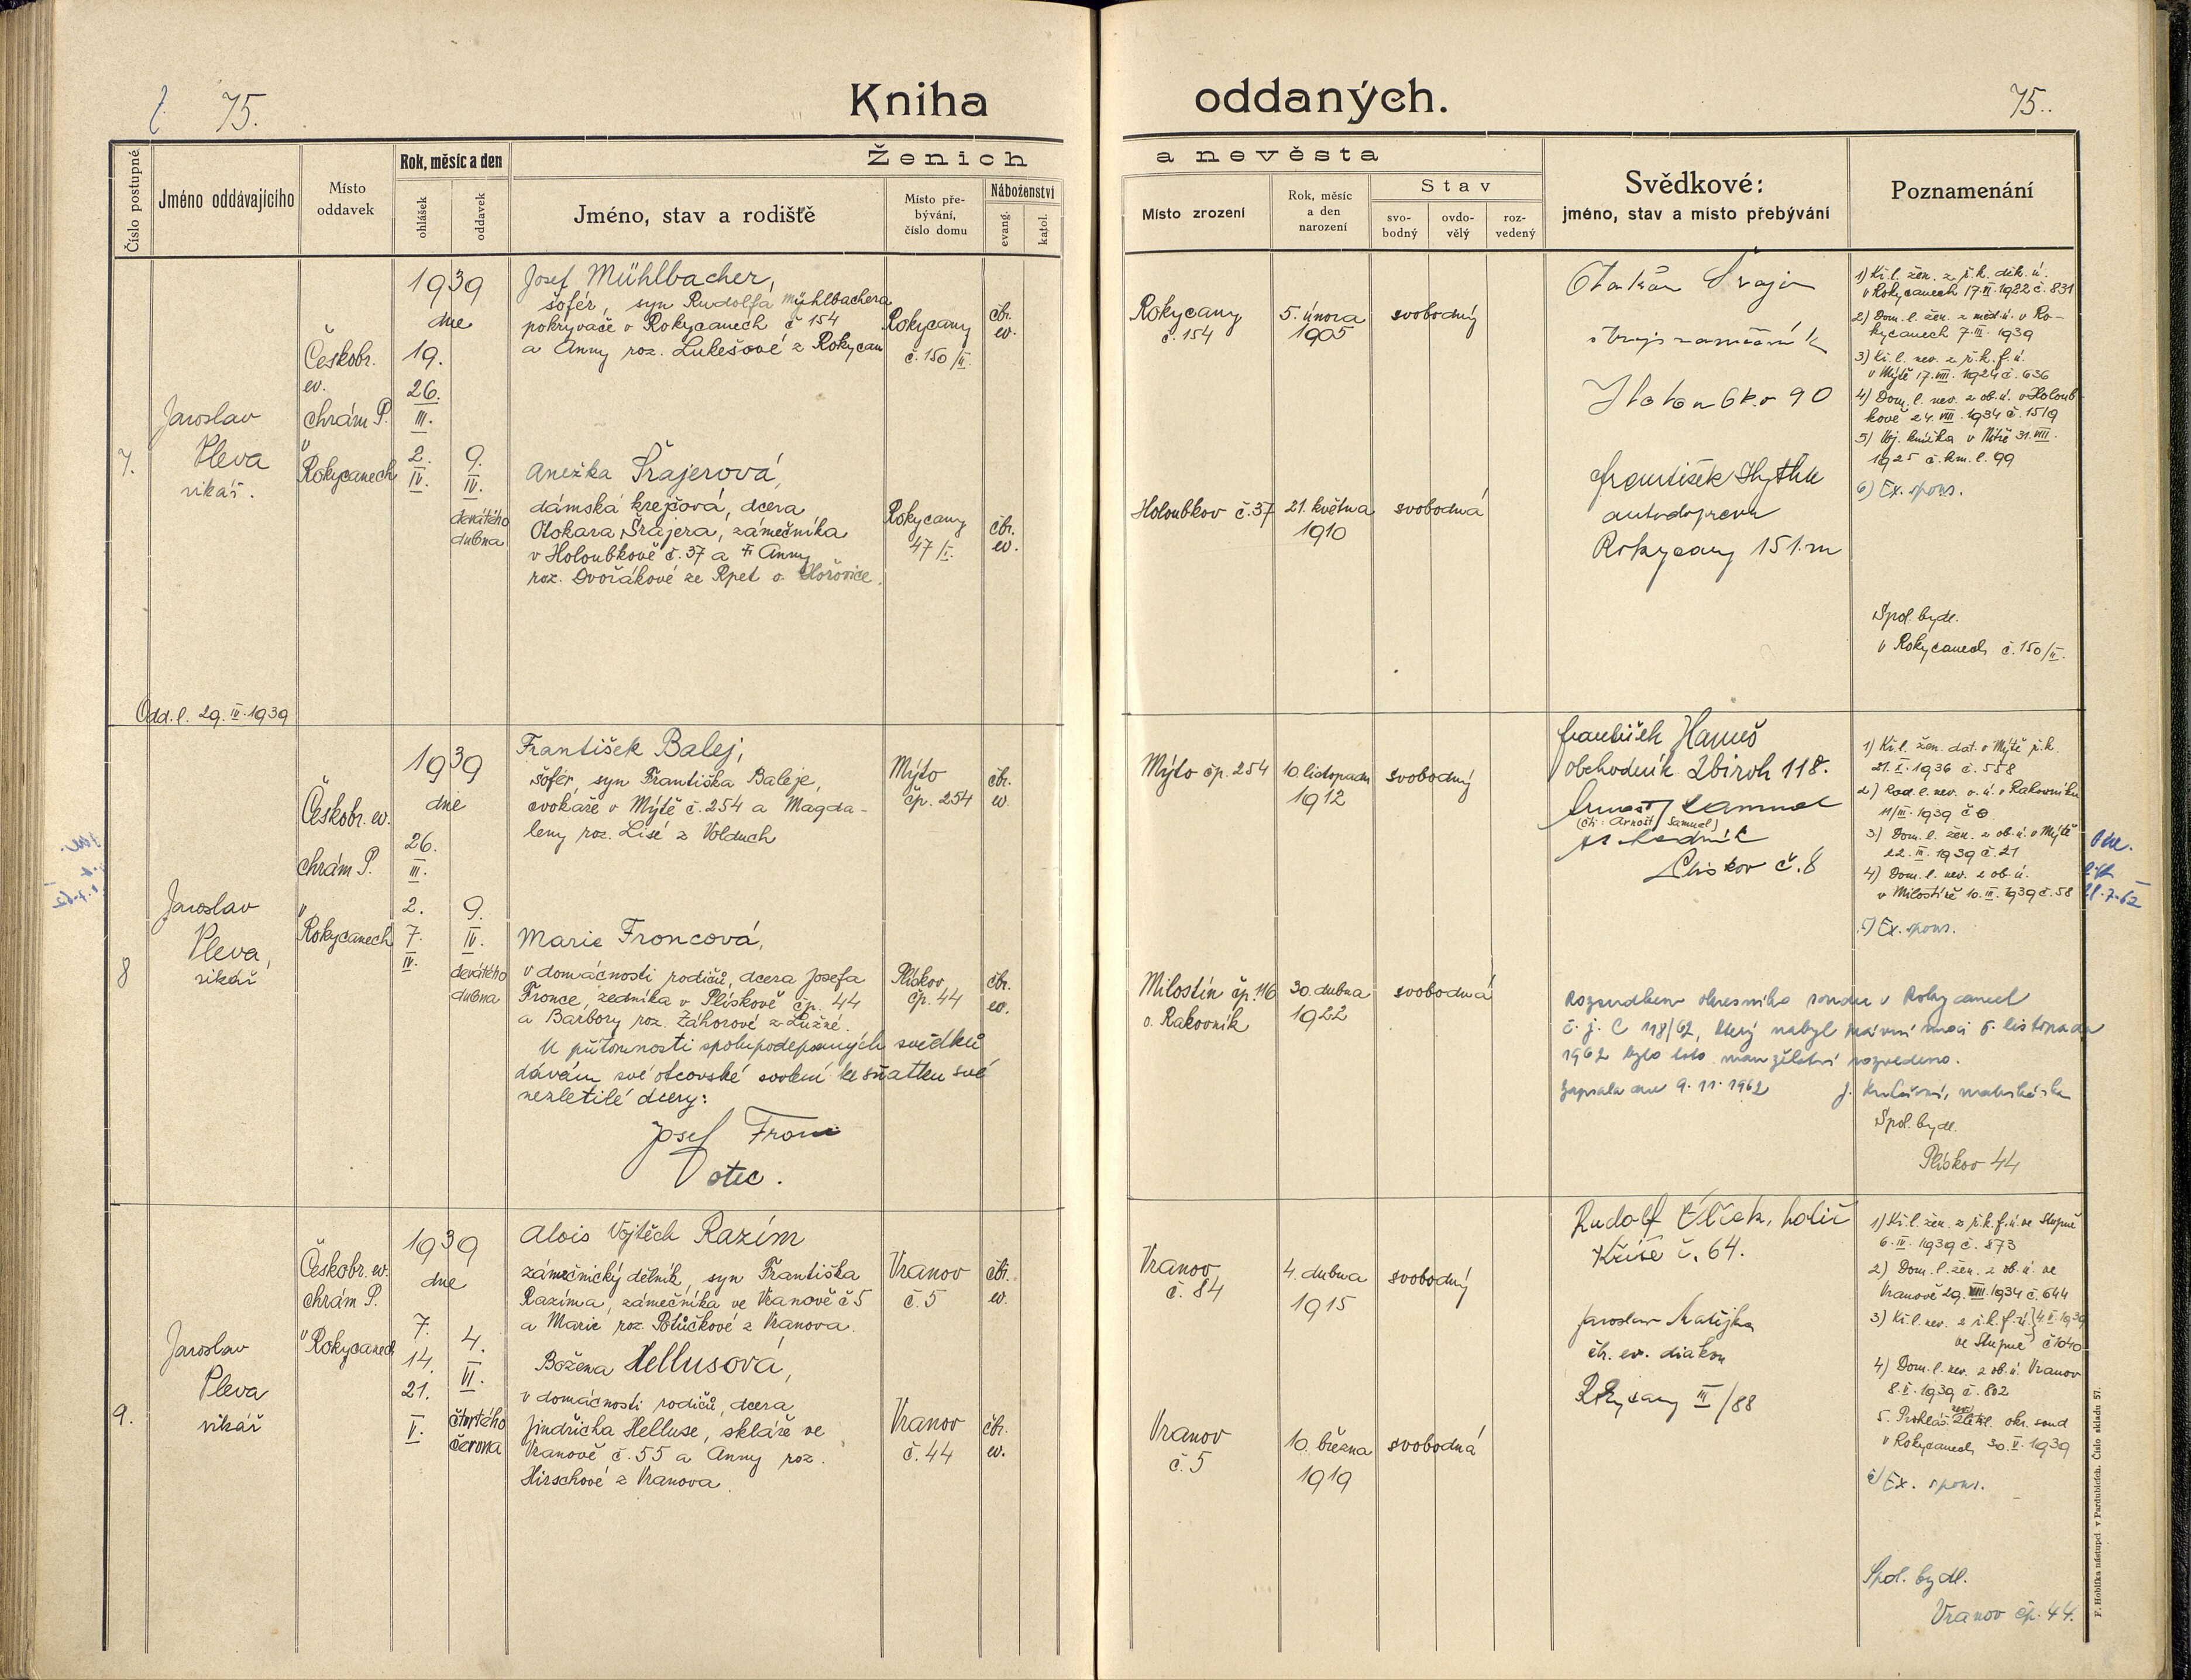 75.
Kniha
oddaných.
75.
Číslo postupné
Jméno oddávajícího
Místo
oddavek
Rok, měsíc a den
ohlášek
oddavek
Ženich
Jméno, stav a rodiště
Místo pře-
bývání,
číslo domu
Náboženství
evang.
katol.
a nevěsta
Místo zrození
Rok, měsíc
a den
narození
Stav
svo-
bodný
ovdo-
vělý
roz-
vedený
Svědkové:
jméno, stav a místo přebývání
Poznamenání
7.
Jaroslav
Pleva
vikář.
Odd. l. 29. IV. 1939
Českobr.
ev.
chrám P.
v
Rokycanech
1939
dne
19.
26.
III.
2.
IV.
9.
IV.
devátého
dubna
Josef Mühlbacher,
šofér, syn Rudolfa Mühlbachera
pokrývače v Rokycanech č 154
a Anny roz. Lukešové z Rokycan
Rokycany
č. 150/II.
čbr.
ev.
Anežka Šrajerová,
dámská krejčová, dcera
Otokara Šrajera, zámečníka
v Holoubkově č. 37 a Anny
roz. Dvořákové ze Rpet o. Hořovice.
Rokycany
47/I.
čbr.
ev.
Rokycany
č. 154
5. února
1905
svobodný
Holoubkov č. 37
21. května
1910
svobodná
Otakar
90
František
autodoprava
Rokycany 151
1) Kř. l. žen. z ř. k. děk. ú.
v Rokycanech 17. VI. 1922 č. 831
2) Dom. l. žen. z měst. ú. v Ro-
kycanech 7. III. 1939
3) Kř. l. nev. z ř. k. f. ú.
v Mýtě 17. VIII. 1924 č. 636
4) Dom. l. nev. z ob. ú. v Holoub-
kově 24. VIII. 1934 č. 1519
5) Voj. knížka v Nitře 31. VIII.
1925 č. km. l. 99
6) Ex. spons.
Spol. bydl.
v Rokycanech č. 150/II.
8
Jaroslav
Pleva,
vikář
Českobr. ev.
chrám P.
v
Rokycanech
1939
dne
26.
III.
2.
7.
IV.
9.
IV.
devátého
dubna
František Balej,
šofér, syn Františka Baleje,
cvokaře v Mýtě č. 254 a Magda-
leny roz. Lisé z Volduch
Mýto
čp. 254
čbr.
ev.
Marie Froncová,
v domácnosti rodičů, dcera Josefa
Fronce, zedníka v Plískově čp. 44
a Barbory roz. Záhorové z Lužné.
Plískov
čp. 44
čbr.
ev.
U přítomnosti spolupodepsaných svědků
dávám své otcovské svolení ke sňatku své
nezletilé dcery:
Josef Fronc
otec.
Mýto čp. 254
10. listopadu
1912
svobodný
Milostín čp. 116
o. Rakovník
30. dubna
1922
svobodná
František Hanuš
obchodník Zbiroh 118.
Samuel
(čti: Arnošt Samuel)
Plískov č. 8
Rozsudkem okresního soudu v Rokycanech
č. j. C 118/62, který nabyl právní moci 6. listopada
1962 bylo toto manželství rozvedeno.
Zapsala dne 9. 11. 1962
J. matrikářka
1) Kř. l. žen. dat. v Mýtě ř. k.
21. X. 1936 č. 558
2) Rod. l. nev. o. ú. v Rakovníku
11/III. 1939 č
3) Dom. l. žen. z ob. ú. v Mýtě
22. III. 1939 č. 21
4) Dom. l. nev. z ob. ú.
v Milostíně 10. III. 1939 č. 58
5) Ex. spons.
Spol. bydl.
Plískov 44
9.
Jaroslav
Pleva
vikář
Českobr. ev.
chrám P.
v Rokycanech
1939
dne
7.
14.
21.
V.
4.
VI.
čtvrtého
června
Alois Vojtěch Razím
zámečnický dělník, syn Františka
Razíma, zámečníka ve Vranově č 5
a Marie roz. Potůčkové z Vranova.
Vranov
č. 5
čbr.
ev.
Božena Hellusová,
v domácnosti rodičů, dcera
Jindřicha Helluse, skláře ve
Vranově č. 55 a Anny roz.
Hirschové z Vranova.
Vranov
č. 44
čbr.
ev.
Vranov
č. 84
4. dubna
1915
svobodný
Vranov
č. 5
10. března
1919
svobodná
Rudolf Vlček, holič
Kříše č. 64.
Jaroslav Matějka
čb. ev. diakon
Rokycany III/88
1) Kř. l. žen. z ř. k. f. ú. ve Stupně
6. IV. 1939 č. 873
2) Dom. l. žen. z ob. ú. ve
Vranově 29. VIII. 1934 č. 644
3) Kř. l. nev. z ř. k. f. ú. 4. V. 1939
ve Stupně č 1040
4) Dom. l. nev. z ob. ú. Vranov
8. V. 1939 č. 802
5. Prohláš. zletil. okr. soud
v Rokycanech 30. V. 1939
6) Ex. spons.
Spol. bydl.
Vranov čp. 44.
F. Hoblíka nástupci v Pardubicích. Číslo skladu 57.